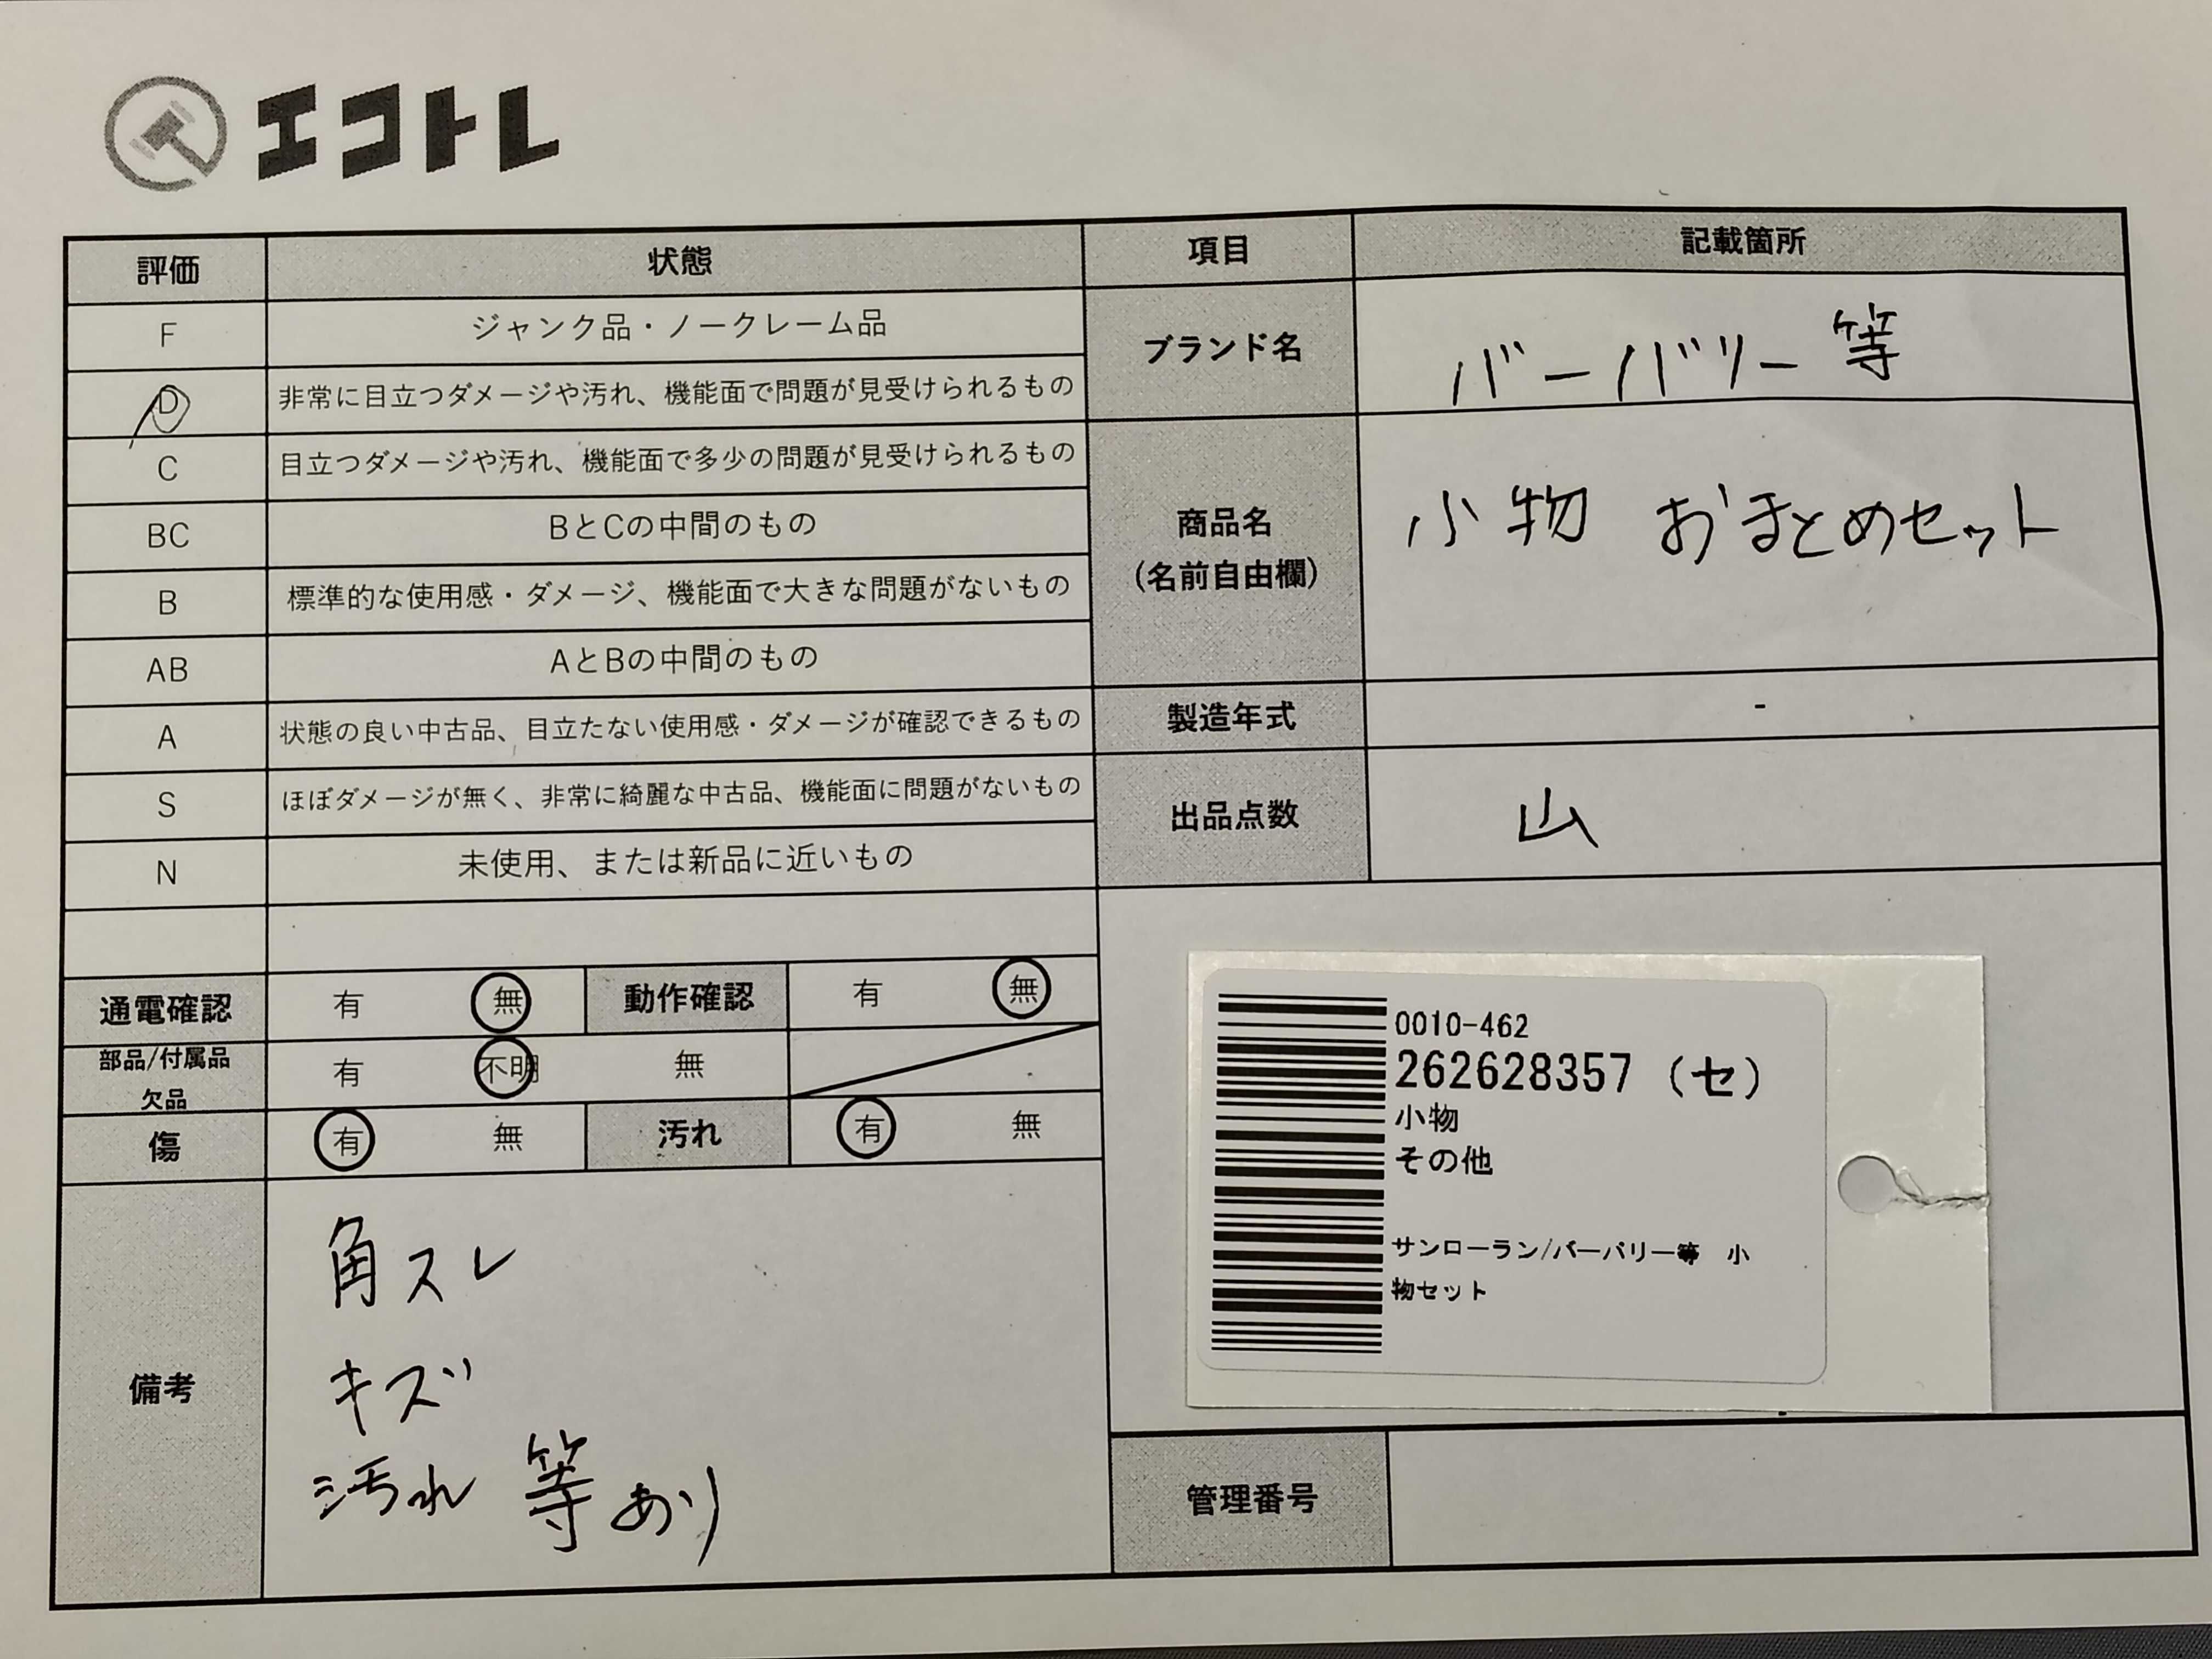 エコトレ
評価 状態 項目 記載箇所
F ジャンク品・ノークレーム品
D 非常に目立つダメージや汚れ、機能面で問題が見受けられるもの
ブランド名 バーバリー等
C 目立つダメージや汚れ、機能面で多少の問題が見受けられるもの
BC BとCの中間のもの
商品名
(名前自由欄)
小物 おまとめセット
B 標準的な使用感・ダメージ、機能面で大きな問題がないもの
AB AとBの中間のもの
A 状態の良い中古品、目立たない使用感・ダメージが確認できるもの
製造年式 -
S ほぼダメージが無く、非常に綺麗な中古品、機能面に問題がないもの
出品点数 山
N 未使用、または新品に近いもの
通電確認 有 無 動作確認 有 無
部品/付属品
欠品
有 不明 無
傷 有 無 汚れ 有 無
備考
角スレ
キズ
汚れ 等あり
0010-462
262628357 (セ)
小物
その他
サンローラン/バーバリー等 小
物セット
管理番号